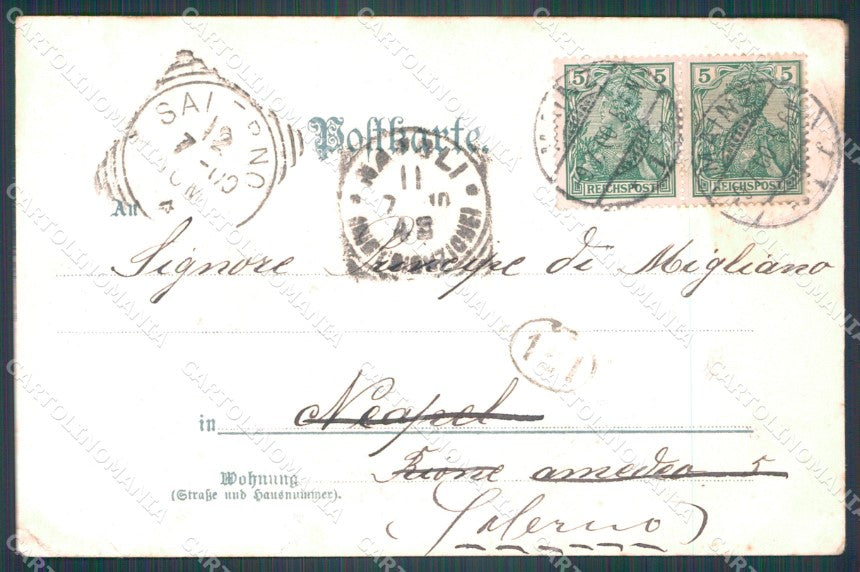 SALERNO
12
7-00
Postkarte.
NAPOLI
11
7 10
5 5
REICHSPOST
5 5
REICHSPOST
An
Signore Principe di Migliano
in Neapel
Wohnung
(Straße und Hausnummer).
Rione amedeo 5
(Salerno)
CARTOLINOMANIA